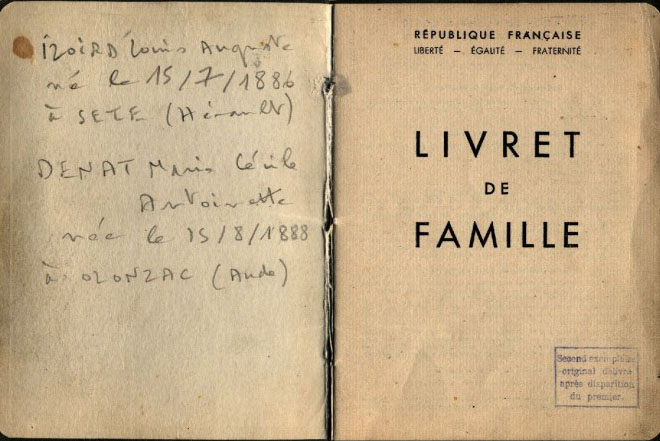 IZOIRD Louis Auguste
né le 15/7/1886
à SETE (Hérault)
DENAT Marie Cécile
Antoinette
née le 15/8/1888
à OLONZAC (Aude)
RÉPUBLIQUE FRANÇAISE
LIBERTÉ — ÉGALITÉ — FRATERNITÉ
LIVRET
DE
FAMILLE
Second exemplaire
original délivré
après disparition
du premier.